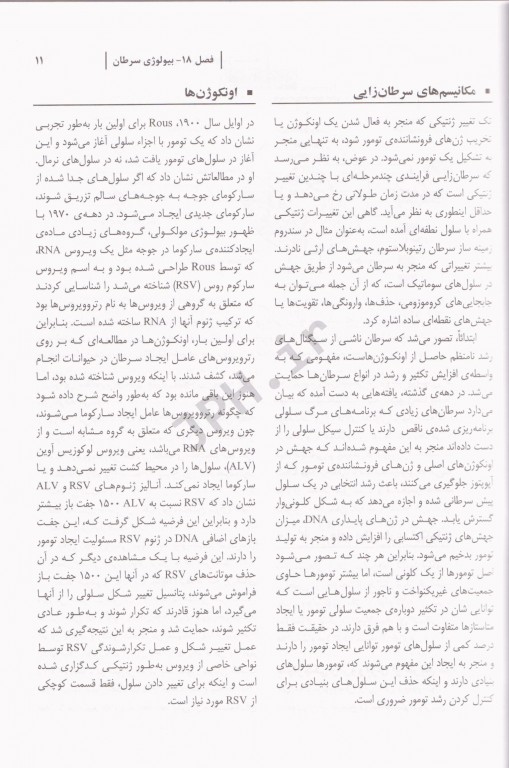 فصل ۱۸- بیولوژی سرطان
۱۱
مکانیسم‌های سرطان‌زایی
تک تغییر ژنتیکی که منجر به فعال شدن یک اونکوژن یا
تخریب ژن‌های فرونشاننده‌ی تومور شود، به تنهایی منجر
به تشکیل یک تومور نمی‌شود. در عوض، به نظر می‌رسد
که سرطان‌زایی فرایندی چندمرحله‌ای با چندین تغییر
ژنتیکی است که در مدت زمان طولانی رخ می‌دهد و یا
حداقل اینطوری به نظر می‌آید. گاهی این تغییرات ژنتیکی
همراه با سلول نطفه‌ای آمده است، به‌عنوان مثال در سندروم
زمینه ساز سرطان رتینوبلاستوم، جهش‌های ارثی نادرند.
بیشتر تغییراتی که منجر به سرطان می‌شود از طریق جهش
در سلول‌های سوماتیک است، که از آن جمله می‌توان به
جابجایی‌های کروموزومی، حذف‌ها، وارونگی‌ها، تقویت‌ها یا
جهش‌های نقطه‌ای ساده اشاره کرد.
ابتدائاً، تصور می‌شد که سرطان ناشی از سیگنال‌های
رشد نامنظم حاصل از اونکوژن‌هاست، مفهومی که به
واسطه‌ی افزایش تکثیر و رشد در انواع سرطان‌ها حمایت
می‌شد. در دهه‌ی گذشته، یافته‌هایی به دست آمده که بیان
می‌دارد سرطان‌های زیادی که برنامه‌های مرگ سلولی
برنامه‌ریزی شده‌ی ناقص دارند یا کنترل سیکل سلولی را از
دست داده‌اند منجر به این مفهوم شده‌اند که جهش در
اونکوژن‌های اصلی و ژن‌های فرونشاننده‌ی تومور که از
آپوپتوز جلوگیری می‌کنند، باعث رشد انتخابی در یک سلول
پیش سرطانی شده و اجازه می‌دهد که به شکل کلونی‌وار
گسترش یابد. جهش در ژن‌های پایداری DNA، میزان
جهش‌های ژنتیکی اکتسابی را افزایش داده و منجر به تولید
تومور بدخیم می‌شود. بنابراین هر چند که تصور می‌شود
اصل تومورها از یک کلونی است، اما بیشتر تومورها حاوی
جمعیت‌های غیریکنواخت و ناجور از سلول‌هایی است که
توانایی شان در تکثیر دوباره‌ی جمعیت سلولی تومور یا ایجاد
متاستازها متفاوت است و با هم فرق دارند. در حقیقت فقط
درصد کمی از سلول‌های تومور توانایی ایجاد تومور را دارند
و منجر به ایجاد این مفهوم می‌شوند که، تومورها سلول‌های
بنیادی دارند و اینکه حذف این سلول‌های بنیادی برای
کنترل کردن رشد تومور ضروری است.
اونکوژن‌ها
در اوایل سال ۱۹۰۰، Rous برای اولین بار به‌طور تجربی
نشان داد که یک تومور با اجزاء سلولی آغاز می‌شود و این
آغاز در سلول‌های تومور یافت شد، نه در سلول‌های نرمال.
او در مطالعاتش نشان داد که اگر سلول‌های جدا شده از
سارکومای جوجه به جوجه‌های سالم تزریق شوند،
سارکومای جدیدی ایجاد می‌شود. در دهه‌ی ۱۹۷۰ با
ظهور بیولوژی مولکولی، گروه‌های زیادی ماده‌ی
ایجادکننده‌ی سارکوما در جوجه مثل یک ویروس RNA،
که توسط Rous طراحی شده بود و به اسم ویروس
سارکوم روس (RSV) شناخته می‌شد را شناسایی کردند
که متعلق به گروهی از ویروس‌ها به نام رتروویروس‌ها بود
که ترکیب ژنوم آنها از RNA ساخته شده است. بنابراین
برای اولین بار، اونکوژن‌ها در مطالعه‌ای که بر روی
رتروویروس‌های عامل ایجاد سرطان در حیوانات انجام
می‌شد، کشف شدند. با اینکه ویروس شناخته شده بود، اما
هنوز این باقی مانده بود که به‌طور واضح شرح داده شود
که چگونه رتروویروس‌ها عامل ایجاد سارکوما می‌شوند،
چون ویروس دیگری که متعلق به گروه مشابه است و از
ویروس‌های RNA می‌باشد، یعنی ویروس لوکوزیس آوین
(ALV)، سلول‌ها را در محیط کشت تغییر نمی‌دهد و یا
سارکوما ایجاد نمی‌کند. آنالیز ژنوم‌های RSV و ALV
نشان داد که RSV نسبت به ALV ۱۵۰۰ جفت باز بیشتر
دارد و بنابراین این فرضیه شکل گرفت که، این جفت
بازهای اضافی DNA در ژنوم RSV مسئولیت ایجاد تومور
را دارند. این فرضیه با یک مشاهده‌ی دیگر که در آن
حذف موتانت‌های RSV که در آنها این ۱۵۰۰ جفت باز
فراموش می‌شوند، پتانسیل تغییر شکل سلولی را از آنها
می‌گیرد، اما هنوز قادرند که تکرار شوند و به‌طور عادی
تکثیر شوند، حمایت شد و منجر به این نتیجه‌گیری شد که
عمل تغییر شکل و عمل تکرارشوندگی RSV توسط
نواحی خاصی از ویروس به‌طور ژنتیکی کدگزاری شده
است و اینکه برای تغییر دادن سلول، فقط قسمت کوچکی
از RSV مورد نیاز است.
JPH.ir